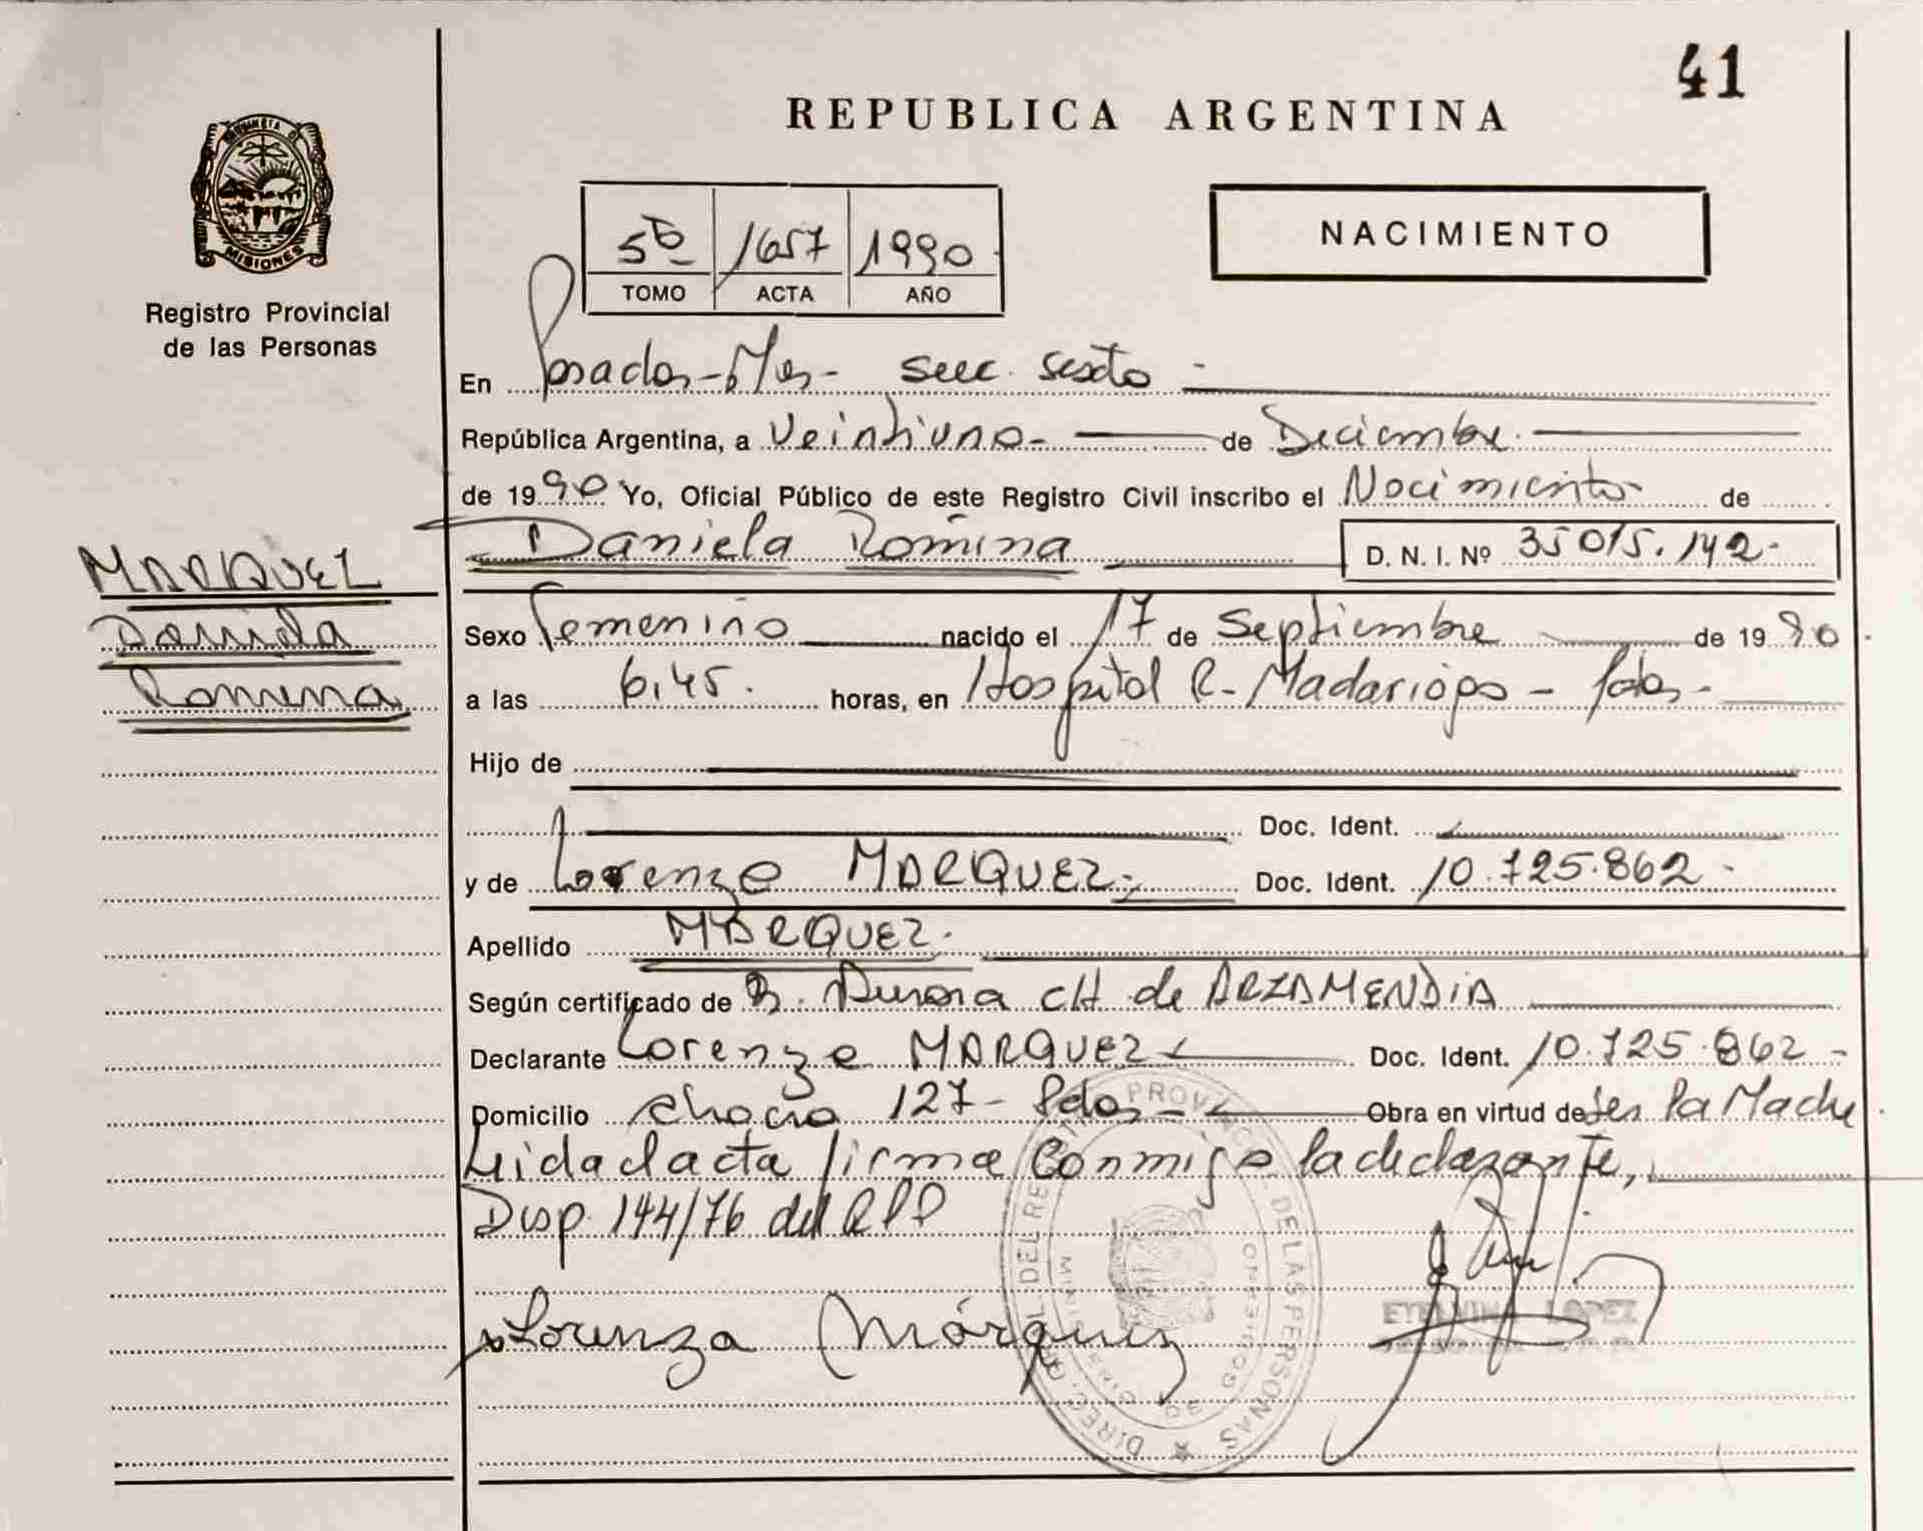 41
REPUBLICA ARGENTINA
PROVINCIA DE
MISIONES
Registro Provincial
de las Personas
5º 1657 1990
TOMO ACTA AÑO
NACIMIENTO
En Posadas - Mes - secc. sexta
República Argentina, a Veintiuno - de Diciembre.
de 1990 Yo, Oficial Público de este Registro Civil inscribo el Nacimiento de
Daniela Romina D. N. I. Nº 35015.142-
MARQUEZ
Daniela
Romina
Sexo Femenino nacido el 17 de Septiembre de 1990.
a las 6.45. horas, en Hospital R. Madariaga - Pdas -
Hijo de
Doc. Ident.
y de Lorenza MARQUEZ, Doc. Ident. 10.725.862 -
Apellido MARQUEZ.
Según certificado de Aurora CH. de ARZAMENDIA
Declarante Lorenza MARQUEZ Doc. Ident. 10.725.862 -
Domicilio 127 - Pdas - Obra en virtud de ser la Madre.
Leida el acta firma conmigo la declarante,
Disp. 144/76 del RPP
Lorenza Márquez
LOPEZ
DIREC. GRAL. DEL REG. PROVINC. DE LAS PERSONAS
MISIONES